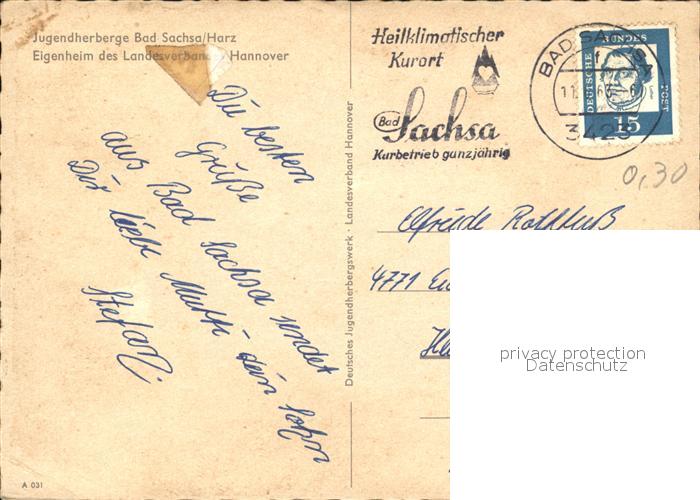 Jugendherberge Bad Sachsa/Harz
Eigenheim des Landesverbandes Hannover
Die besten
Grüße
aus Bad Sachsa sendet
Dir liebe Mutti dein Sohn
Stefan
A 031
Deutsches Jugendherbergswerk · Landesverband Hannover
Heilklimatischer
Kurort
Bad
Sachsa
Kurbetrieb ganzjährig
BAD SA
3423
DEUTSCHE BUNDES POST
15
0,30
Elfriede Rothfuß
4771
privacy protection
Datenschutz